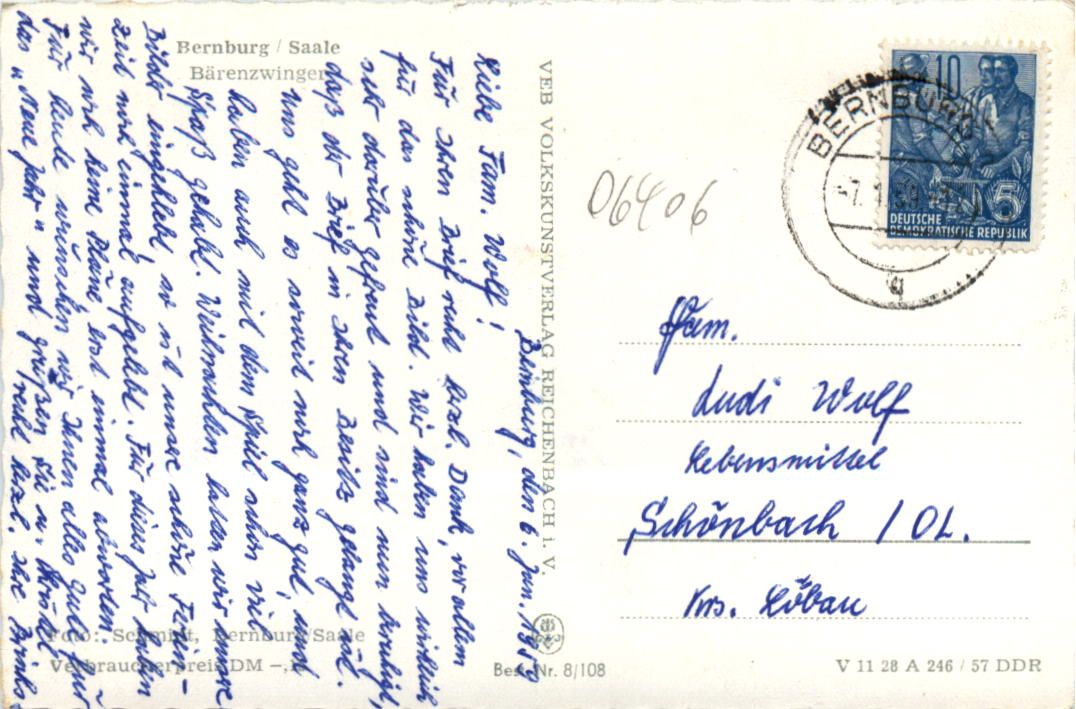 Bernburg / Saale
Bärenzwinger
Bernburg, den 6. Jan. 1959
Liebe Fam. Wolf!
Für Ihren Brief recht herzl. Dank, vor allem
für das schöne Bild. Wir haben uns wirklich
sehr darüber gefreut und sind nun beruhigt,
daß der Brief in Ihren Besitz gelangt ist.
Uns geht es soweit noch ganz gut, und
haben auch mit dem Spiel schon viel
Spaß gehabt. Weihnachten haben wir unsere
Bilder eingeklebt, so ist unsere schöne Ferien-
zeit noch einmal aufgelebt. Für dieses Jahr haben
wir noch keine Pläne, erst einmal abwarten.
Für heute wünschen wir Ihnen alles Gute für
das "Neue Jahr" und grüßen Sie u. recht herzl. Ihre
Foto: Schmidt, Bernburg/Saale
Verbraucherpreis DM -,
VEB VOLKSKUNSTVERLAG REICHENBACH i. V.
Best.-Nr. 8/108
V 11 28 A 246 / 57 DDR
06406
10
5
DEUTSCHE
DEMOKRATISCHE REPUBLIK
BERNBURG
-7. 1. 59
q
Fam.
Rudi Wolf
Lebensmittel
Schönbach / OL.
Krs. Löbau